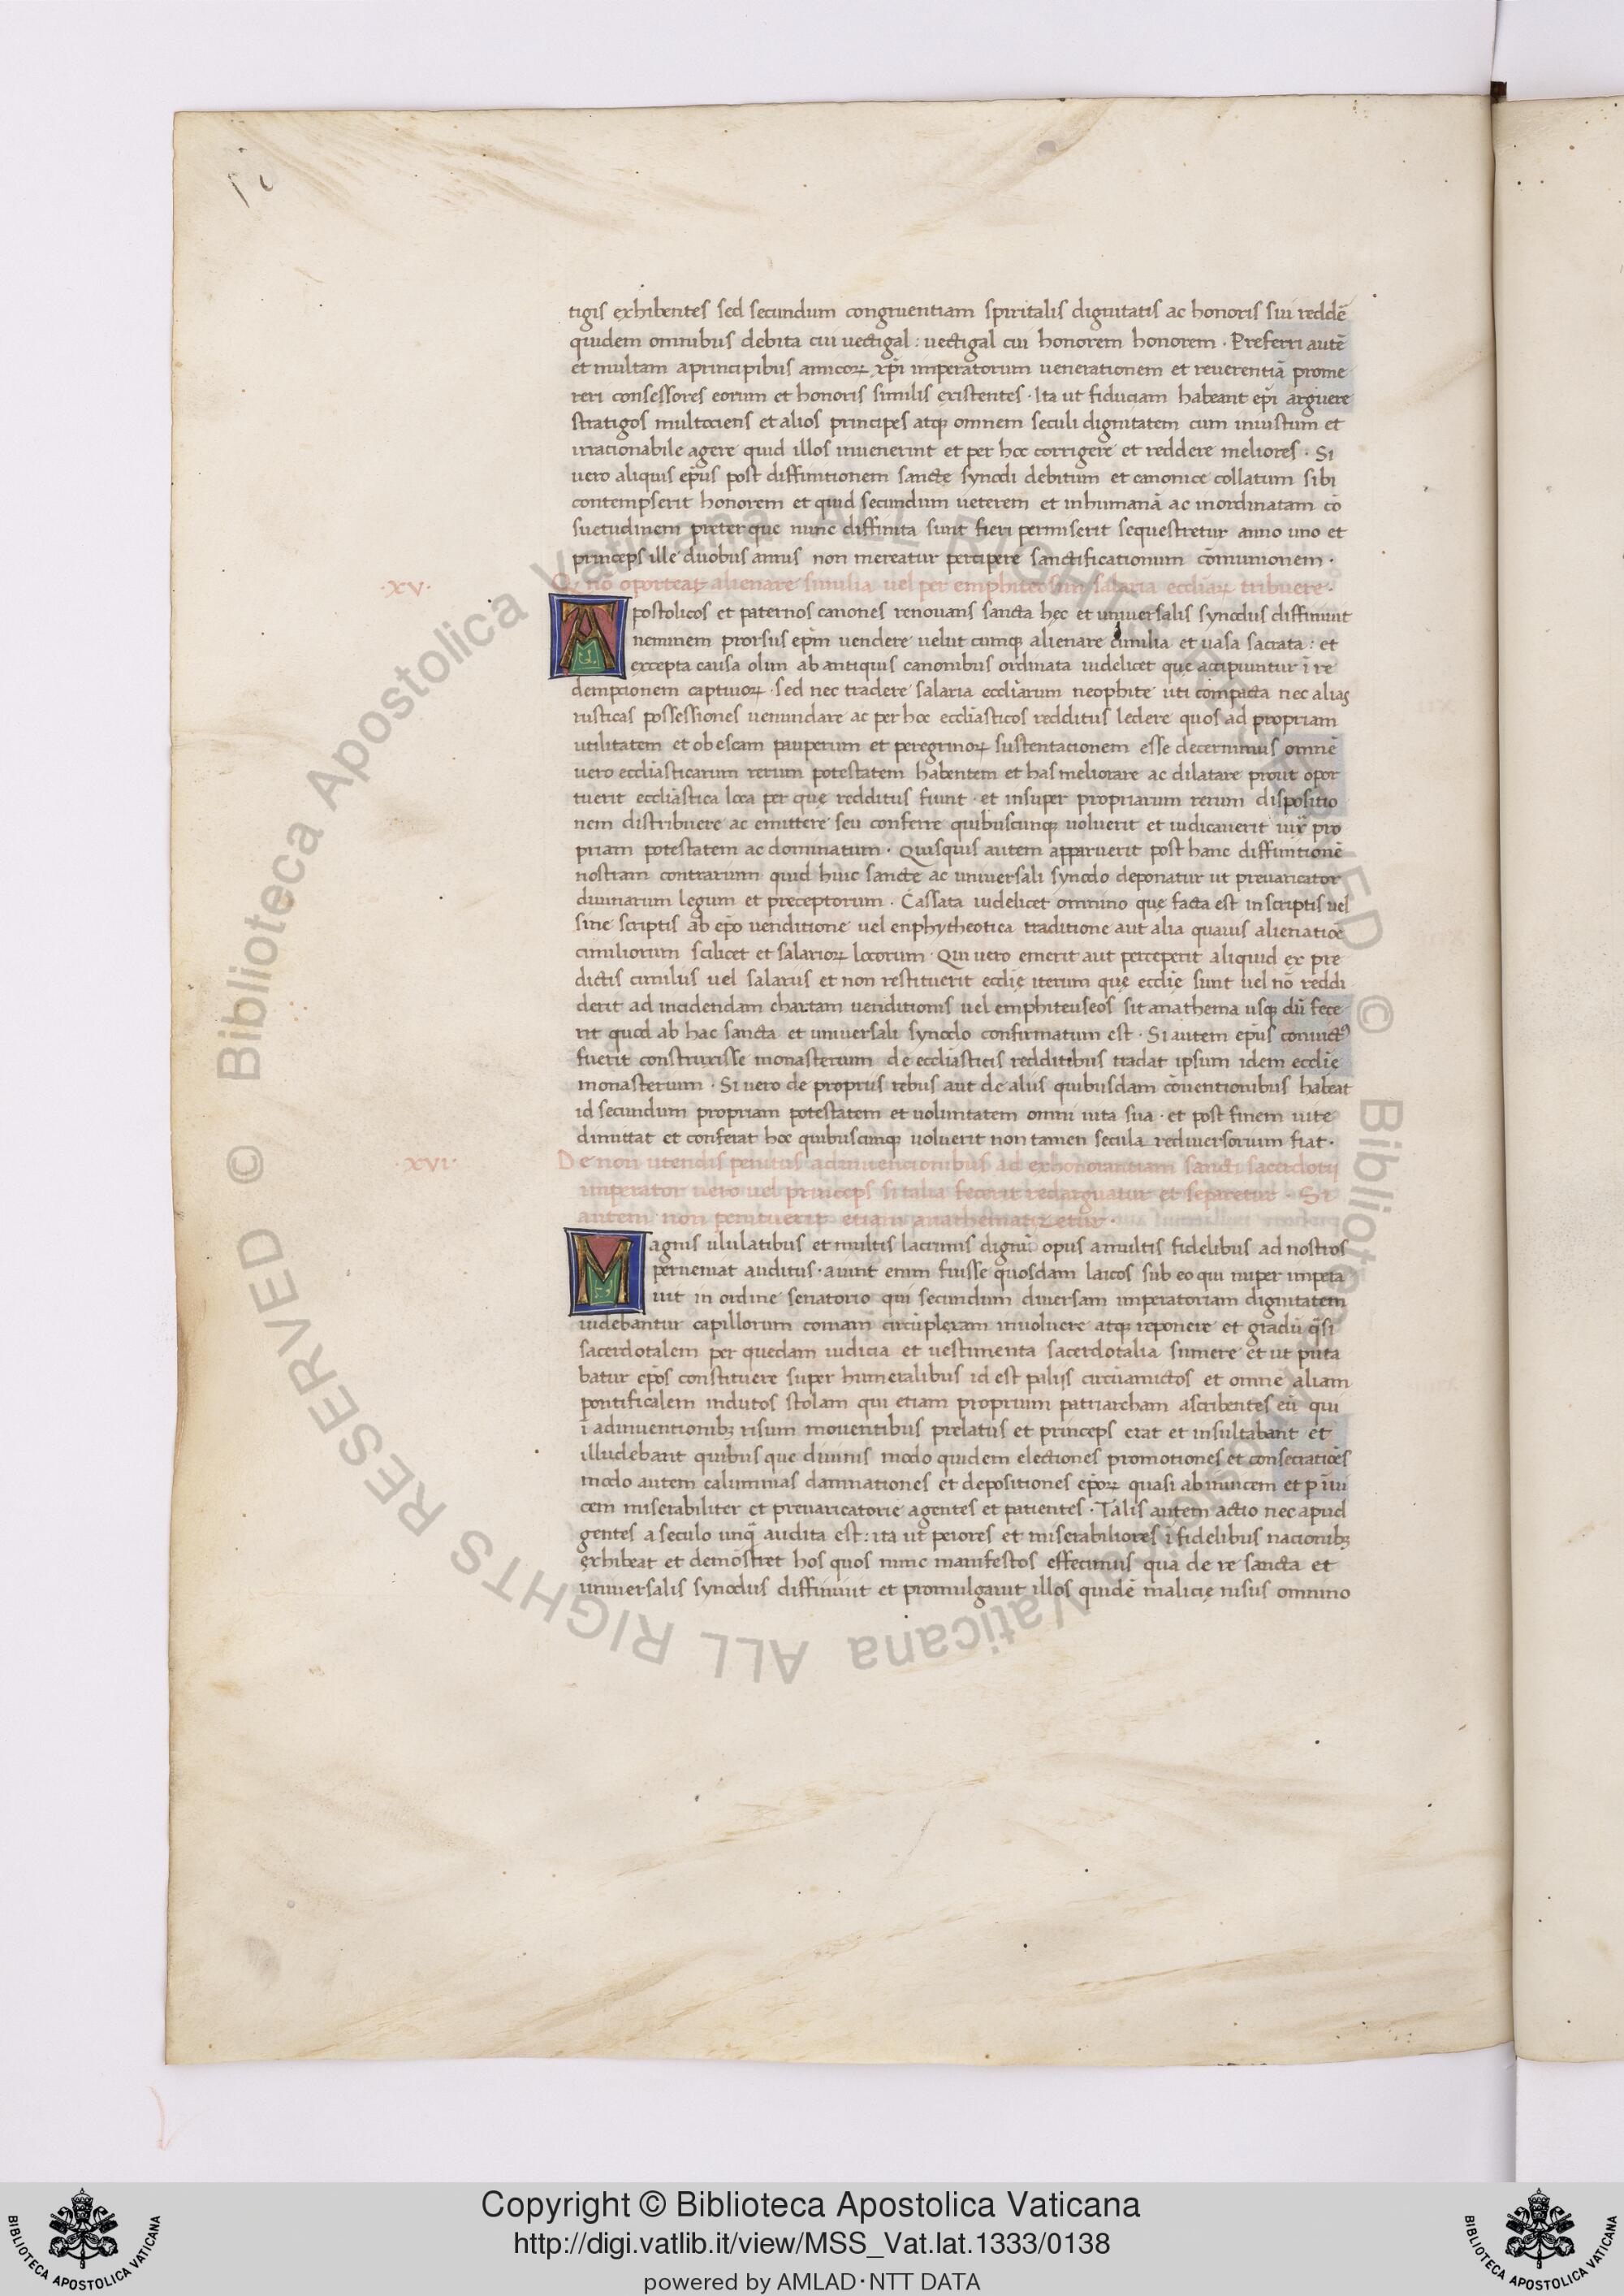 tigis exhibentes sed secundum congruentiam spiritalis dignitatis ac honoris sui reddē
quidem omnibus debita cui uectigal: uectigal cui honorem honorem · Preferri autē
et multam a principibus amicoꝝ xp̄i imperatorum uenerationem et reuerentiā prome
reri consessores eorum et honoris similis existentes · Ita ut fiduciam habeant ep̄i arguere
stratigos multociens et alios principes atqꝫ omnem seculi dignitatem cum iniustum et
irracionabile agere quid illos inuenerint et per hoc corrigere et reddere meliores · Si
uero aliquis ep̄us post diffinitionem sancte synodi debitum et canonice collatum sibi
contempserit honorem et quid secundum ueterem et inhumanā ac inordinatam cō
suetudinem preter que nunc diffinita sunt fieri permiserit sequestretur anno uno et
princeps ille duobus annis non mereatur percipere sanctificationum cōmunionem ·
·XV·
nō oporteat alienare similia uel per emphiteosim salaria eccliaꝝ tribuere ·
Apostolicos et paternos canones renouans sancta hec et uniuersalis synodus diffiniuit
neminem prorsus ep̄m uendere uelut cumqꝫ alienare cimilia et uasa sacrata: et
excepta causa olim ab antiquis canonibus ordinata uidelicet quę accipiuntur ī re
demptionem captiuoꝝ · sed nec tradere salaria eccliarum neophite uti compacta nec alias
rusticas possessiones uenundare ac per hoc eccliasticos redditus ledere quos ad propriam
utilitatem et ob escam pauperum et peregrinoꝝ sustentacionem esse decernimus omnē
uero eccliasticarum rerum potestatem habentem et has meliorare ac dilatare prout opor
tuerit eccliastica loca per quę redditus fiunt · et insuper propriarum rerum dispositio
nem distribuere ac emittere seu conferre quibuscunqꝫ uoluerit et iudicauerit iux̄ pro
priam potestatem ac dominatum · Quisquis autem apparuerit post hanc diffinitionē
nostram contrarium quid huic sancte ac uniuersali synodo deponatur ut preuaricator
diuinarum legum et preceptorum · Cassata uidelicet omnino quę facta est in scriptis uel
sine scriptis ab ep̄o uenditione uel enphytheotica traditione aut alia quauis alienatiōe
cimiliorum scilicet et salarioꝝ locorum · Qui uero emerit aut perceperit aliquid ex pre
dictis cimiliis uel salariis et non restituerit ecclię iterum quę ecclię sunt uel nō reddi
derit ad incidendam chartam uenditionis uel emphiteuseos sit anathema usqꝫ dū fece
rit quod ab hac sancta et uniuersali synodo confirmatum est · Si autem ep̄us conuictꝰ
fuerit construxisse monasterium de eccliasticis redditibus tradat ipsum idem ecclię
monasterium · Si uero de propriis rebus aut de aliis quibusdam cōuentionibus habeat
id secundum propriam potestatem et uoluntatem omni uita sua · et post finem uite
dimittat et conferat hoc quibuscunqꝫ uoluerit non tamen secula rediuersorium fiat ·
·XVI·
De non utendis penitus adinuencionibus ad exhonorantiam sancti sacerdotii
imperator uero uel princeps si talia fecerit redarguatur et separetur · Si
autem non penituerit etiam anathematizetur ·
Magnis ululatibus et multis lacrimis dignū opus a multis fidelibus ad nostros
peruenat auditus · aiunt enim fuisse quosdam laicos sub eo qui nuper impera
uit in ordine senatorio qui secundum diuersam imperatoriam dignitatem
uidebantur capillorum comam circūplexam inuoluere atqꝫ reponere et gradū q̄si
sacerdotalem per quedam iudicia et uestimenta sacerdotalia sumere et ut puta
batur ep̄os constituere super humeralibus id est paliis circūamictos et omne aliam
pontificalem indutos stolam qui etiam proprium patriarcham ascribentes eū qui
ī adinuentionibꝫ risum mouentibus prelatus et princeps erat et insultabant et
illudebant quibusque diuinis modo quidem electiones promotiones et consecratiōes
modo autem calumnias damnationes et depositiones ep̄oꝝ quasi ab inuicem et p īui
cem miserabiliter et preuaricatorie agentes et patientes · Talis autem actio nec apud
gentes a seculo unq̄ audita est: ita ut peiores et miserabiliores ī fidelibus nacionibꝫ
exhibeat et demōstret hos quos nunc manifestos effecimus qua de re sancta et
uniuersalis synodus diffiniuit et promulgauit illos quidē malicię nisus omnino
Copyright © Biblioteca Apostolica Vaticana
http://digi.vatlib.it/view/MSS_Vat.lat.1333/0138
powered by AMLAD·NTT DATA
BIBLIOTECA APOSTOLICA VATICANA
BIBLIOTECA APOSTOLICA VATICANA
© Biblioteca Apostolica Vaticana ALL RIGHTS RESERVED © Biblioteca Apostolica Vaticana ALL RIGHTS RESERVED